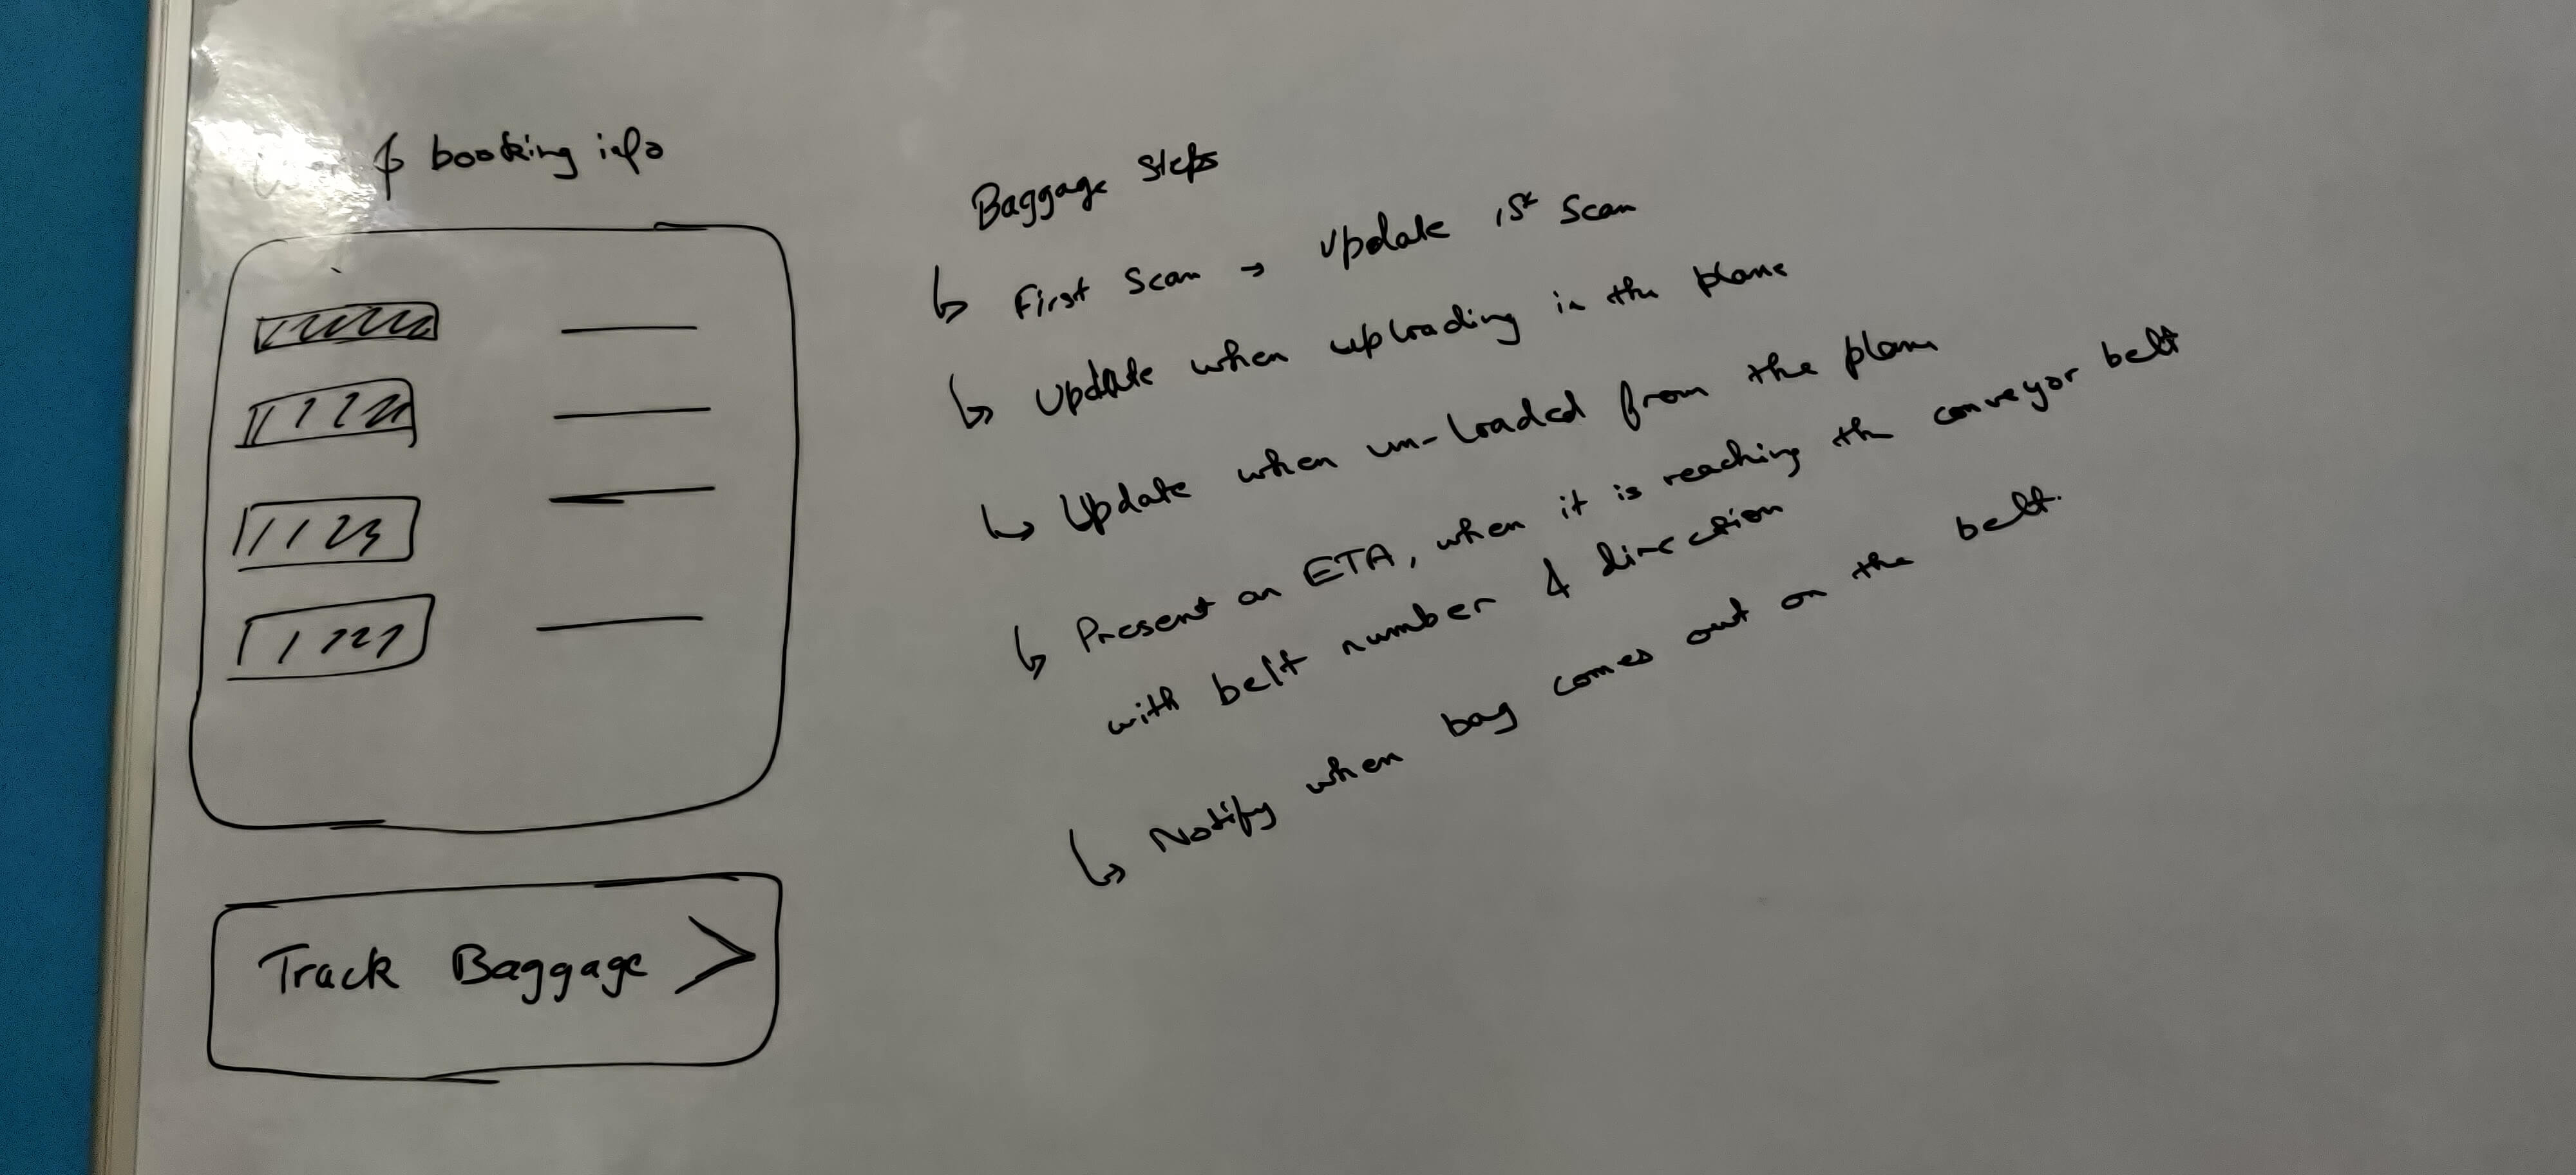 booking info
Track Baggage >
Baggage steps
↳ First Scan → Update 1st Scan
↳ Update when uploading in the plane
↳ Update when un-loaded from the plane
↳ Present an ETA, when it is reaching the conveyor belt
with belt number & direction
↳ Notify when bag comes out on the belt.